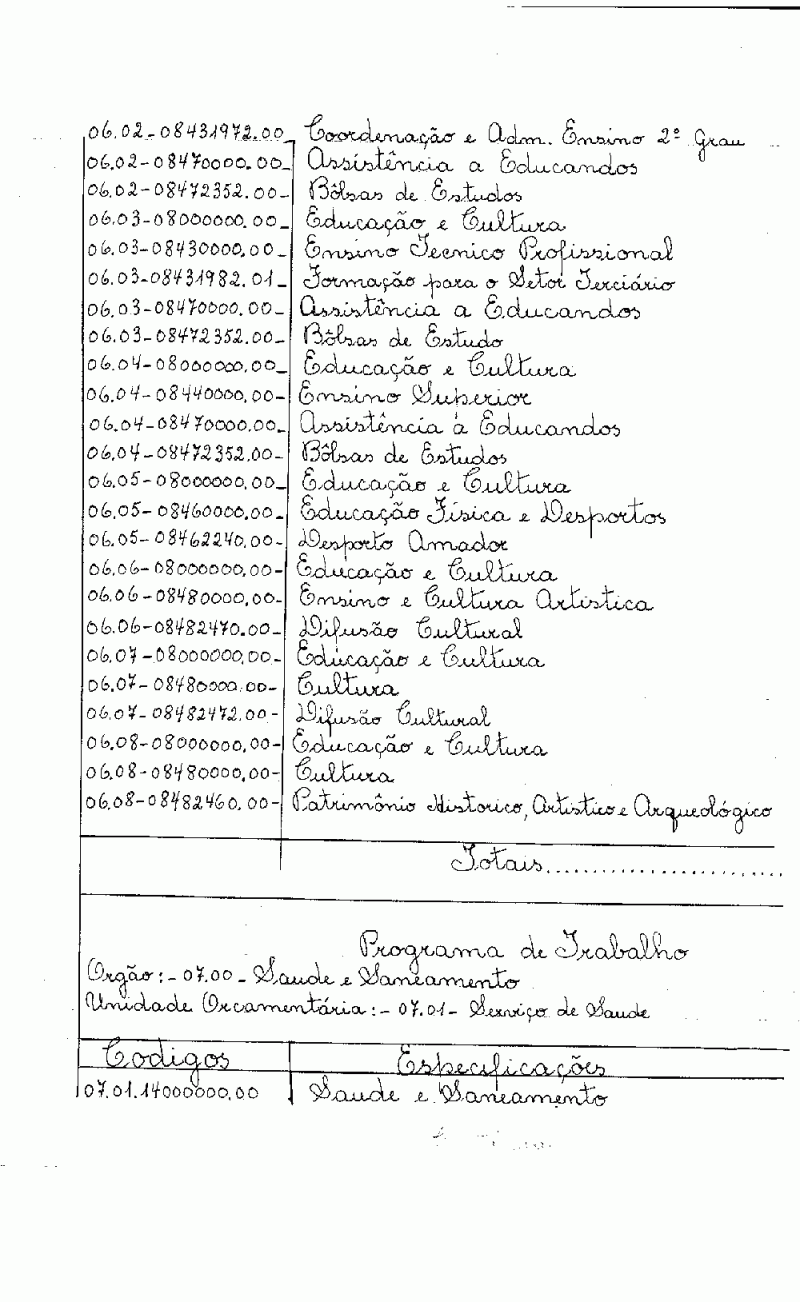 06.02-08431972.00_ Coordenação e Adm. Ensino 2º Grau
06.02-08470000.00_ Assistência a Educandos
06.02-08472352.00- Bôlsas de Estudos
06.03-08000000.00_ Educação e Cultura
06.03-08430000.00_ Ensino Tecnico Profissional
06.03-08431982.01- Formação para o Setor Terciário
06.03-08470000.00_ Assistência a Educandos
06.03-08472352.00_ Bôlsas de Estudo
06.04-08000000.00_ Educação e Cultura
06.04-08440000.00- Ensino Superior
06.04-08470000.00- Assistência à Educandos
06.04-08472352.00- Bôlsas de Estudos
06.05-08000000.00_ Educação e Cultura
06.05-08460000.00- Educação Física e Desportos
06.05-08462240.00- Desporto Amador
06.06-08000000.00- Educação e Cultura
06.06-08480000.00- Ensino e Cultura Artistica
06.06-08482470.00- Difusão Cultural
06.07-08000000.00- Educação e Cultura
06.07-08480000.00- Cultura
06.07-08482472.00- Difusão Cultural
06.08-08000000,00- Educação e Cultura
06.08-08480000,00- Cultura
06.08-08482460.00- Patrimônio Historico, Artistico e Arqueológico
Totais........................
Programa de Trabalho
Orgão:- 07.00 - Saude e Saneamento
Unidade Orcamentária:- 07.01- Serviço de Saude
Codigos Especificações
07.01.14000000.00 Saude e Saneamento